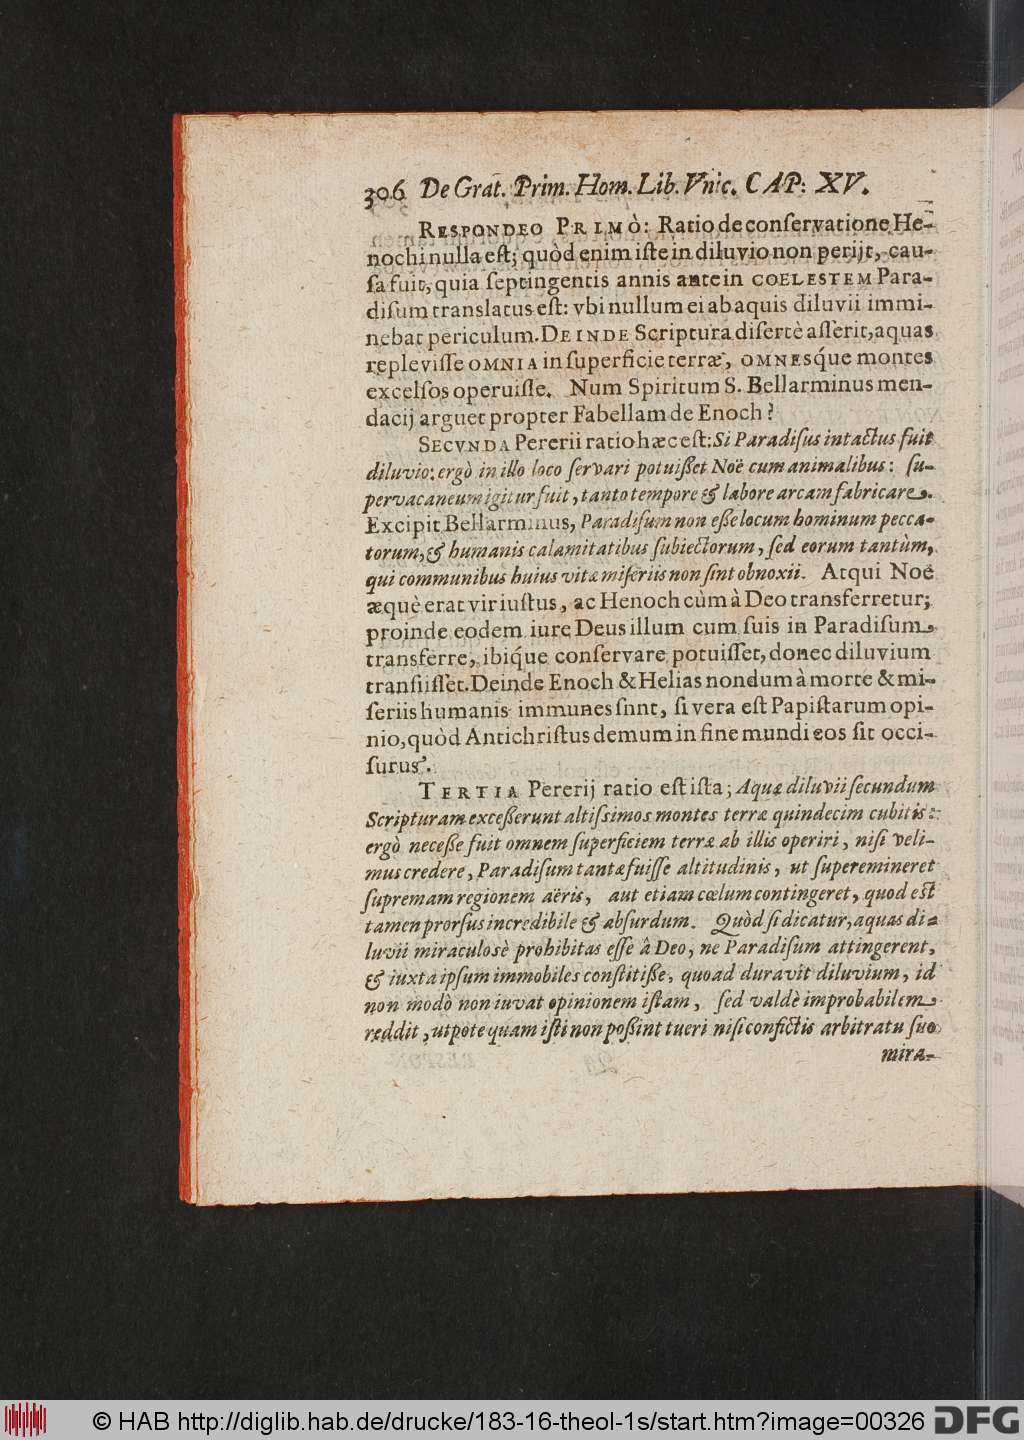 306 De Grat. Prim. Hom. Lib. Vnic. CAP: XV.
RESPONDEO PRIMÒ: Ratio de conſervatione He-
nochi nulla eſt; quòd enim iſte in diluvio non perijt, cau-
ſa fuit, quia ſeptingentis annis ante in COELESTEM Para-
diſum translatus eſt: vbi nullum ei ab aquis diluvii immi-
nebat periculum. DEINDE Scriptura diſertè aſſerit, aquas
repleviſſe OMNIA in ſuperficie terræ, OMNESq́ue montes
excelſos operuiſſe. Num Spiritum S. Bellarminus men-
dacij arguet propter Fabellam de Enoch?
SECVNDA Pererii ratio hæc eſt: Si Paradiſus intactus fuit
diluvio: ergò in illo loco ſervari potuißet Noë cum animalibus: ſu-
pervacaneum igitur fuit, tanto tempore & labore arcam fabricare.
Excipit Bellarminus, Paradiſum non eße locum hominum pecca-
torum, & humanis calamitatibus ſubiectorum, ſed eorum tantùm,
qui communibus huius vitæ miſeriis non ſint obnoxii. Atqui Noë
æquè erat vir iuſtus, ac Henoch cùm à Deo transferretur;
proinde eodem iure Deus illum cum ſuis in Paradiſum
transferre, ibiq́ue conſervare potuiſſet, donec diluvium
tranſiiſſet. Deinde Enoch & Helias nondum à morte & mi-
ſeriis humanis immunes ſnnt, ſi vera eſt Papiſtarum opi-
nio, quòd Antichriſtus demum in fine mundi eos ſit occi-
ſurus.
TERTIA Pererij ratio eſt iſta; Aquæ diluvii ſecundum
Scripturam exceßerunt altiſsimos montes terræ quindecim cubitis:
ergò neceße fuit omnem ſuperficiem terræ ab illis operiri, niſi veli-
mus credere, Paradiſum tantæ fuiſſe altitudinis, ut ſuperemineret
ſupremam regionem aëris, aut etiam cœlum contingeret, quod eſt
tamen prorſus incredibile & abſurdum. Quòd ſi dicatur, aquas di-
luvii miraculosè prohibitas eſſe à Deo, ne Paradiſum attingerent,
& iuxta ipſum immobiles conſtitiße, quoad duravit diluvium, id
non modò non iuvat opinionem iſtam, ſed valdè improbabilem
reddit, utpote quam iſti non poßint tueri niſi confictis arbitratu ſuo
mira-
© HAB http://diglib.hab.de/drucke/183-16-theol-1s/start.htm?image=00326 DFG